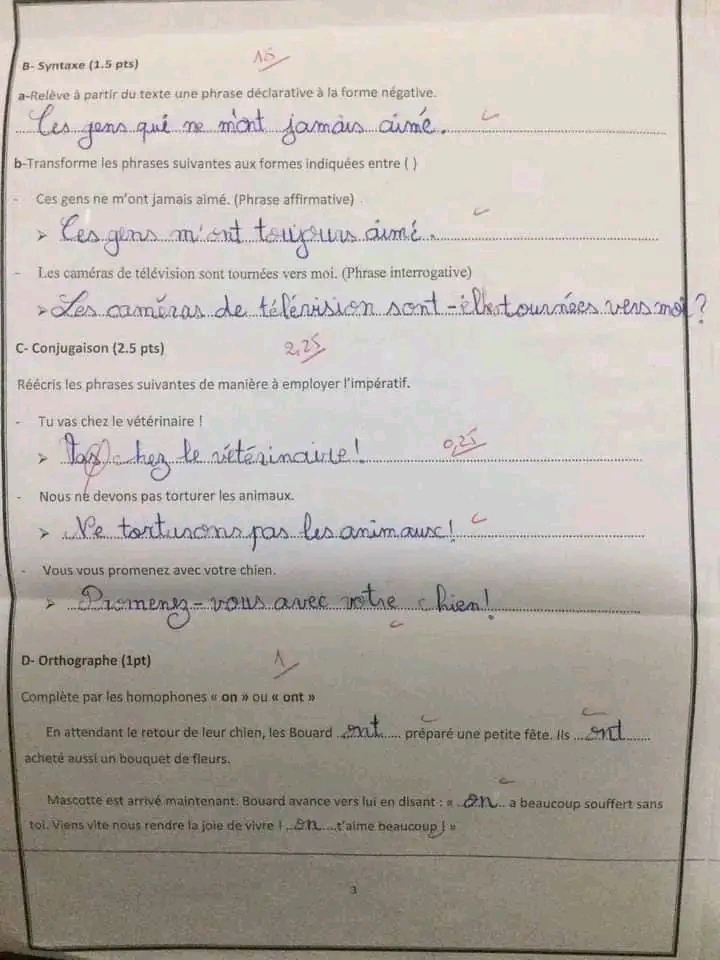 B- Syntaxe (1.5 pts) 1.5
a-Relève à partir du texte une phrase déclarative à la forme négative.
Ces gens qui ne m'ont jamais aimé.
b-Transforme les phrases suivantes aux formes indiquées entre ( )
- Ces gens ne m'ont jamais aimé. (Phrase affirmative)
➤ Ces gens m'ont toujours aimé.
- Les caméras de télévision sont tournées vers moi. (Phrase interrogative)
➤ Les caméras de télévision sont-elles tournées vers moi ?
C- Conjugaison (2.5 pts) 2,25
Réécris les phrases suivantes de manière à employer l'impératif.
- Tu vas chez le vétérinaire !
➤ Vas chez le vétérinaire ! 0,25
- Nous ne devons pas torturer les animaux.
➤ Ne torturons pas les animaux !
- Vous vous promenez avec votre chien.
➤ Promenez-vous avec votre chien !
D- Orthographe (1pt) 1
Complète par les homophones « on » ou « ont »
En attendant le retour de leur chien, les Bouard ont préparé une petite fête. Ils ont
acheté aussi un bouquet de fleurs.
Mascotte est arrivé maintenant. Bouard avance vers lui en disant : « on a beaucoup souffert sans
toi. Viens vite nous rendre la joie de vivre ! on t'aime beaucoup ! »
3